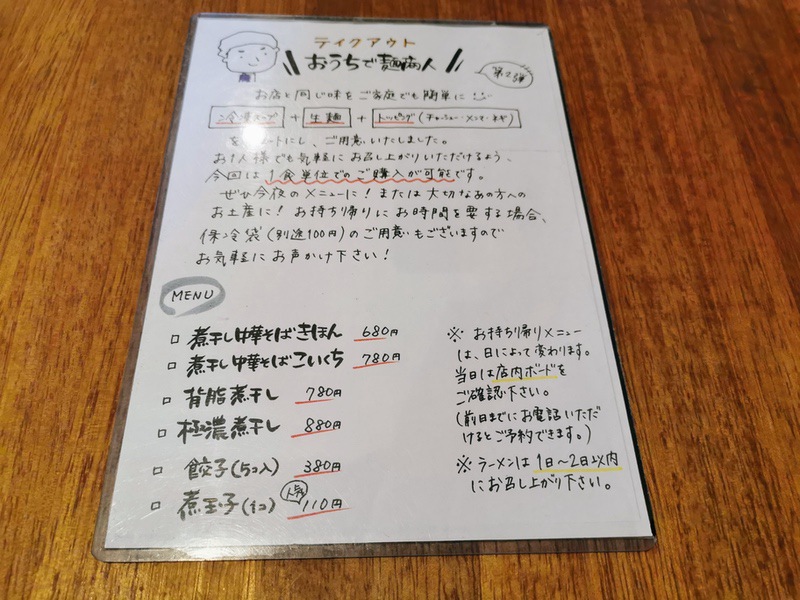 テイクアウト
おうちで麺商人
第2弾
お店と同じ味をご家庭でも簡単に
冷凍スープ + 生麺 + トッピング(チャーシュー・メンマ・ネギ)
をセットにし、ご用意いたしました。
お1人様でも気軽にお召し上がりいただけるよう、
今回は1食単位でのご購入が可能です。
ぜひ今夜のメニューに!または大切なあの方への
お土産に!お持ち帰りにお時間を要する場合、
保冷袋(別途100円)のご用意もございますので
お気軽にお声かけ下さい!
MENU
□ 煮干し中華そばきほん 680円
□ 煮干し中華そばこいくち 780円
□ 背脂煮干し 780円
□ 極濃煮干し 880円
□ 餃子(5コ入) 380円
□ 煮玉子(1コ) 人気 110円
※ お持ち帰りメニュー
は、日によって変わります。
当日は店内ボードを
ご確認下さい。
(前日までにお電話いただ
けるとご予約できます。)
※ ラーメンは1日~2日以内
にお召し上がり下さい。